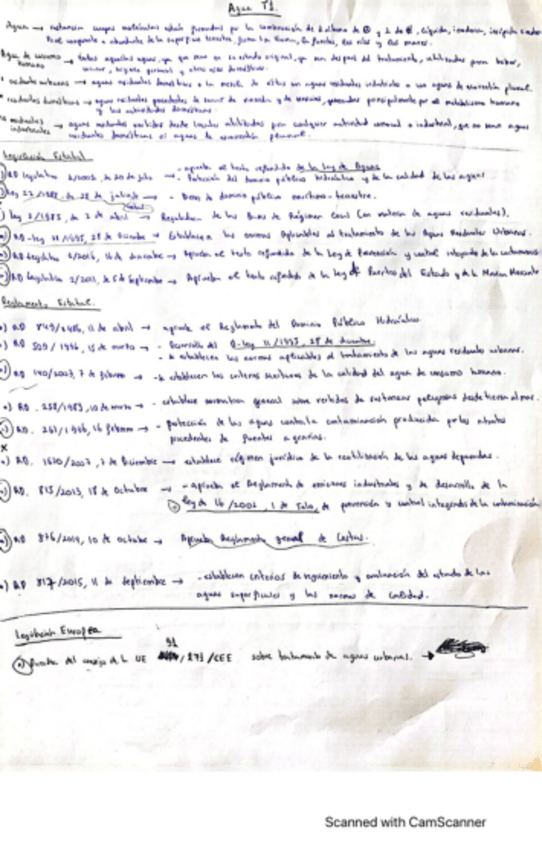 Agua T1.
Agua → sustancia cuyas moléculas están formadas por la combinación de 1 átomo de O y 2 de H, líquida, inodora, insípida
abundante de la superficie terrestre, forma la lluvia, las fuentes, los ríos y los mares.
Agua de consumo humano → todas aquellas aguas, ya que sean en su estado original, ya sea después del tratamiento, utilizadas para beber,
cocinar, higiene personal y otros usos domésticos.
residuales urbanas → aguas residuales domésticas o la mezcla de estas con aguas residuales industriales o con aguas de escorrentía pluvial.
residuales domésticas → aguas residuales procedentes de zonas de vivienda y de servicios, generadas principalmente por el metabolismo humano
y las actividades domésticas.
residuales industriales → aguas residuales vertidas desde locales utilizados para cualquier actividad comercial o industrial, que no sean aguas
residuales domésticas ni aguas de escorrentía pluvial.
Legislación Estatal.
RD Legislativo 1/2001, de 20 de julio → - aprueba el texto refundido de la Ley de Aguas
- Protección del dominio público hidráulico y de la calidad de las aguas
Ley 22/1988, de 28 de julio → - Bienes de dominio público marítimo-terrestre.
Ley 7/1985, de 2 de abril → Reguladora de las Bases de Régimen Local (en materia de aguas residuales).
RD-ley 11/1995, 28 de diciembre → Establecen las normas aplicables al tratamiento de las Aguas Residuales Urbanas.
RD Legislativo 1/2016, 16 de diciembre → Aprueba el texto refundido de la Ley de Prevención y control integrado de la contaminación
RD Legislativo 2/2011, de 5 de Septiembre → Aprueba el texto refundido de la ley de Puertos del Estado y de la Marina Mercante
Reglamento Estatal.
RD 849/1986, 11 de abril → aprueba el Reglamento del Dominio Público Hidráulico.
RD 509/1996, 15 de marzo → - Desarrollo del RD-ley 11/1995, 28 de diciembre
- se establecen las normas aplicables al tratamiento de las aguas residuales urbanas.
RD 140/2003, 7 de febrero → - se establecen los criterios sanitarios de la calidad del agua de consumo humano.
RD. 258/1989, 10 de marzo → - establece normativa general sobre vertidos de sustancias peligrosas desde tierra al mar.
RD. 261/1996, 16 febrero → - protección de las aguas contra la contaminación producida por los nitratos
procedentes de fuentes agrarias.
RD. 1620/2007, 7 de Diciembre → establece régimen jurídico de la reutilización de las aguas depuradas.
RD. 815/2013, 18 de Octubre → - aprueba el Reglamento de emisiones industriales y de desarrollo de la
Ley de 16/2002, 1 de Julio, de prevención y control integrados de la contaminación
RD 876/2014, 10 de octubre → Aprueba Reglamento general de Costas.
RD 817/2015, 11 de Septiembre → - establecen criterios de seguimiento y evaluación del estado de las
aguas superficiales y las normas de Calidad.
Legislación Europea
Directiva del consejo de la UE 91/271/CEE sobre tratamiento de aguas urbanas. →
Scanned with CamScanner